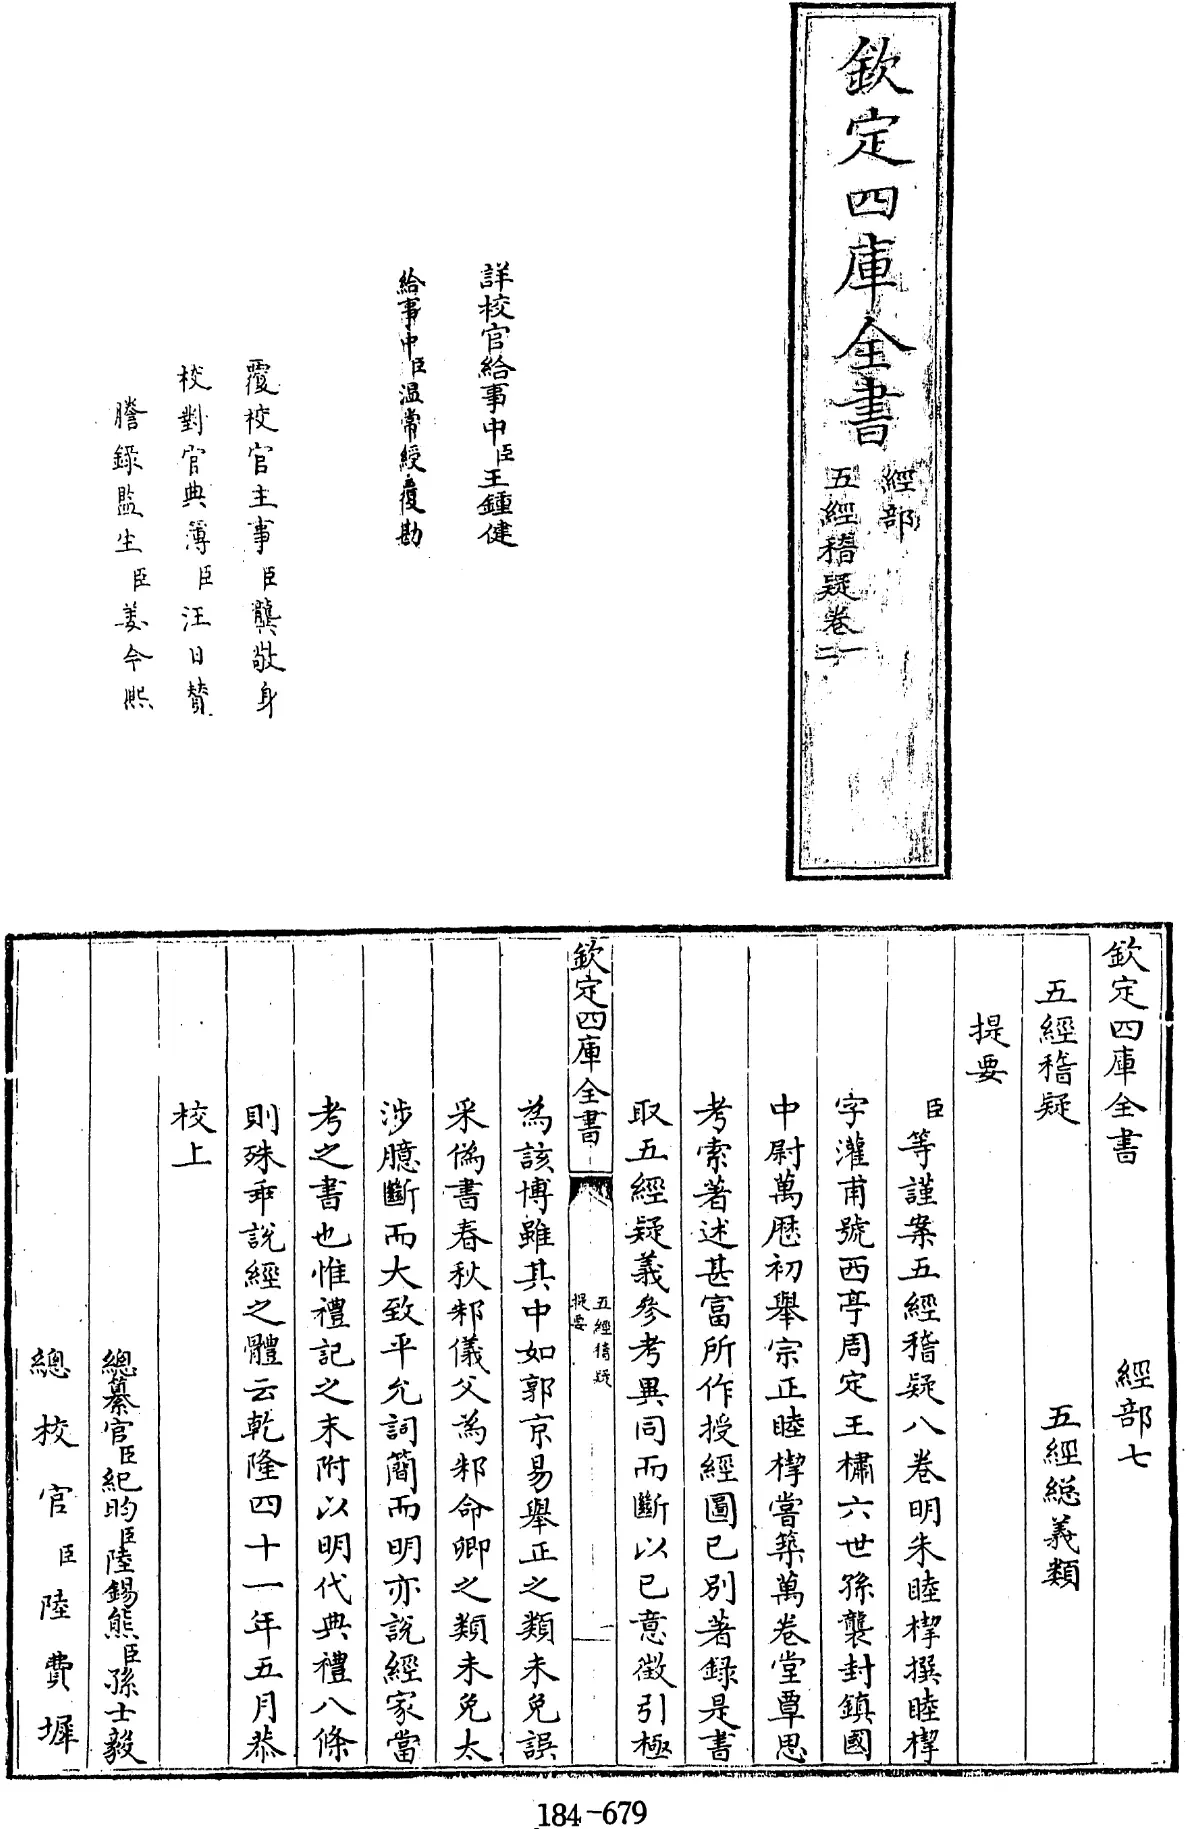 欽定四庫全書
經部
五經稽疑卷一
二
詳校官給事中臣王鍾健
給事中臣温常綬覆勘
覆校官主事臣龔敬身
校對官典簿臣汪日贊
謄錄監生臣姜今熙
欽定四庫全書 經部七
五經稽疑 五經總義類
提要
臣等謹案五經稽疑八卷明朱睦㮮撰睦㮮
字灌甫號西亭周定王橚六世孫襲封鎮國
中尉萬歷初舉宗正睦㮮嘗築萬卷堂覃思
考索著述甚富所作授經圖已別著錄是書
取五經疑義參考異同而斷以已意徵引極
欽定四庫全書
五經稽疑
提要
一
為該博雖其中如郭京易舉正之類未免誤
采偽書春秋邾儀父為邾命卿之類未免太
涉臆斷而大致平允詞簡而明亦說經家當
考之書也惟禮記之末附以明代典禮八條
則殊乖說經之體云乾隆四十一年五月恭
校上
總纂官臣紀昀臣陸錫熊臣孫士毅
總校官臣陸費墀
184-679